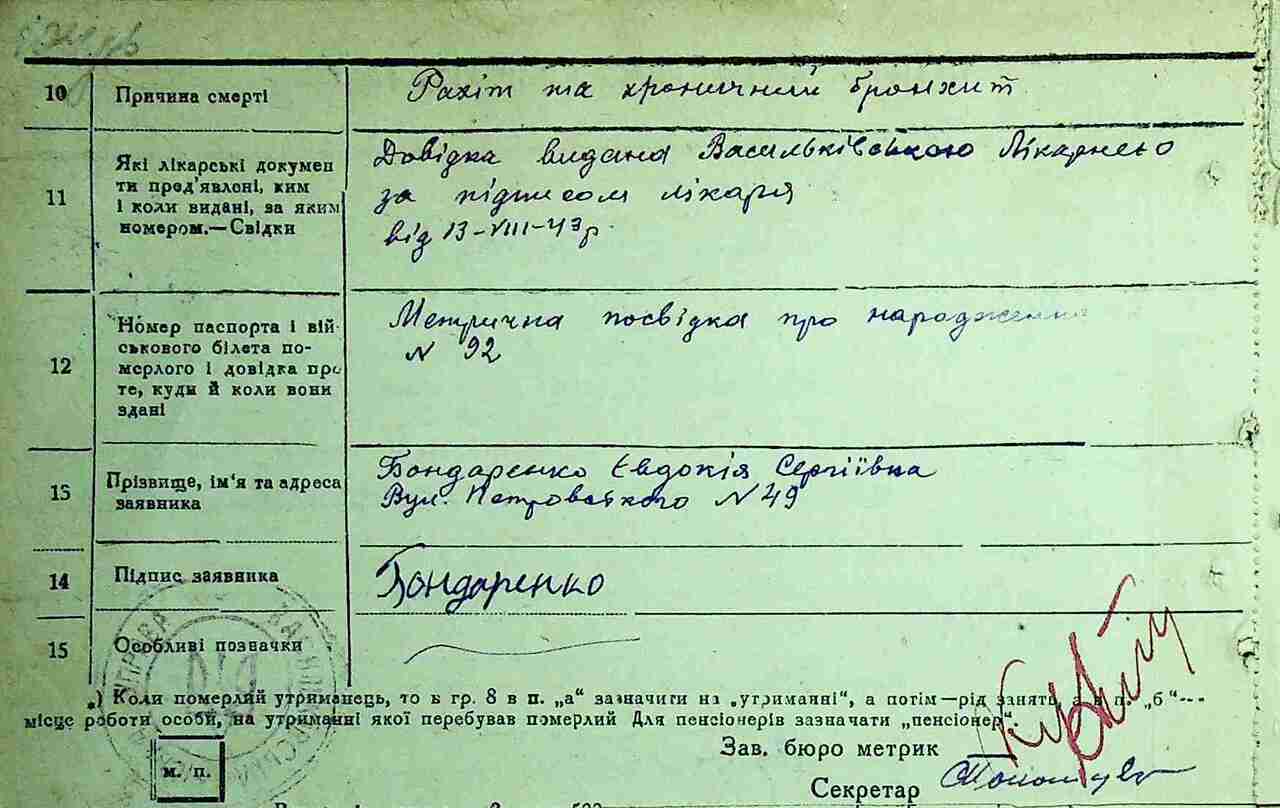 10 Причина смерті Рахіт та хроничний бронхит
11 Які лікарські докумен
ти пред'явлені, ким
і коли видані, за яким
номером.—Свідки
Довідка видана Васильківською Лікарнею
за підписом лікаря
від 13-VIII-43 р.
12 Номер паспорта і вій-
ськового білета по-
мерлого і довідка про
те, куди й коли вони
здані
Метрична посвідка про народження
N 92
15 Прізвище, ім'я та адреса
заявника
Бондаренко Євдокія Сергіївна
Вул. Петровського N 49
14 Підпис заявника Бондаренко
15 Особливі позначки
*) Коли померлий утриманець, то в гр. 8 в п. „а“ зазначити на „утриманні“, а потім—рід занять, а в п. „б“---
місце роботи особи, на утриманні якої перебував померлий Для пенсіонерів зазначати „пенсіонер“.
Зав. бюро метрик
м. п.
Секретар